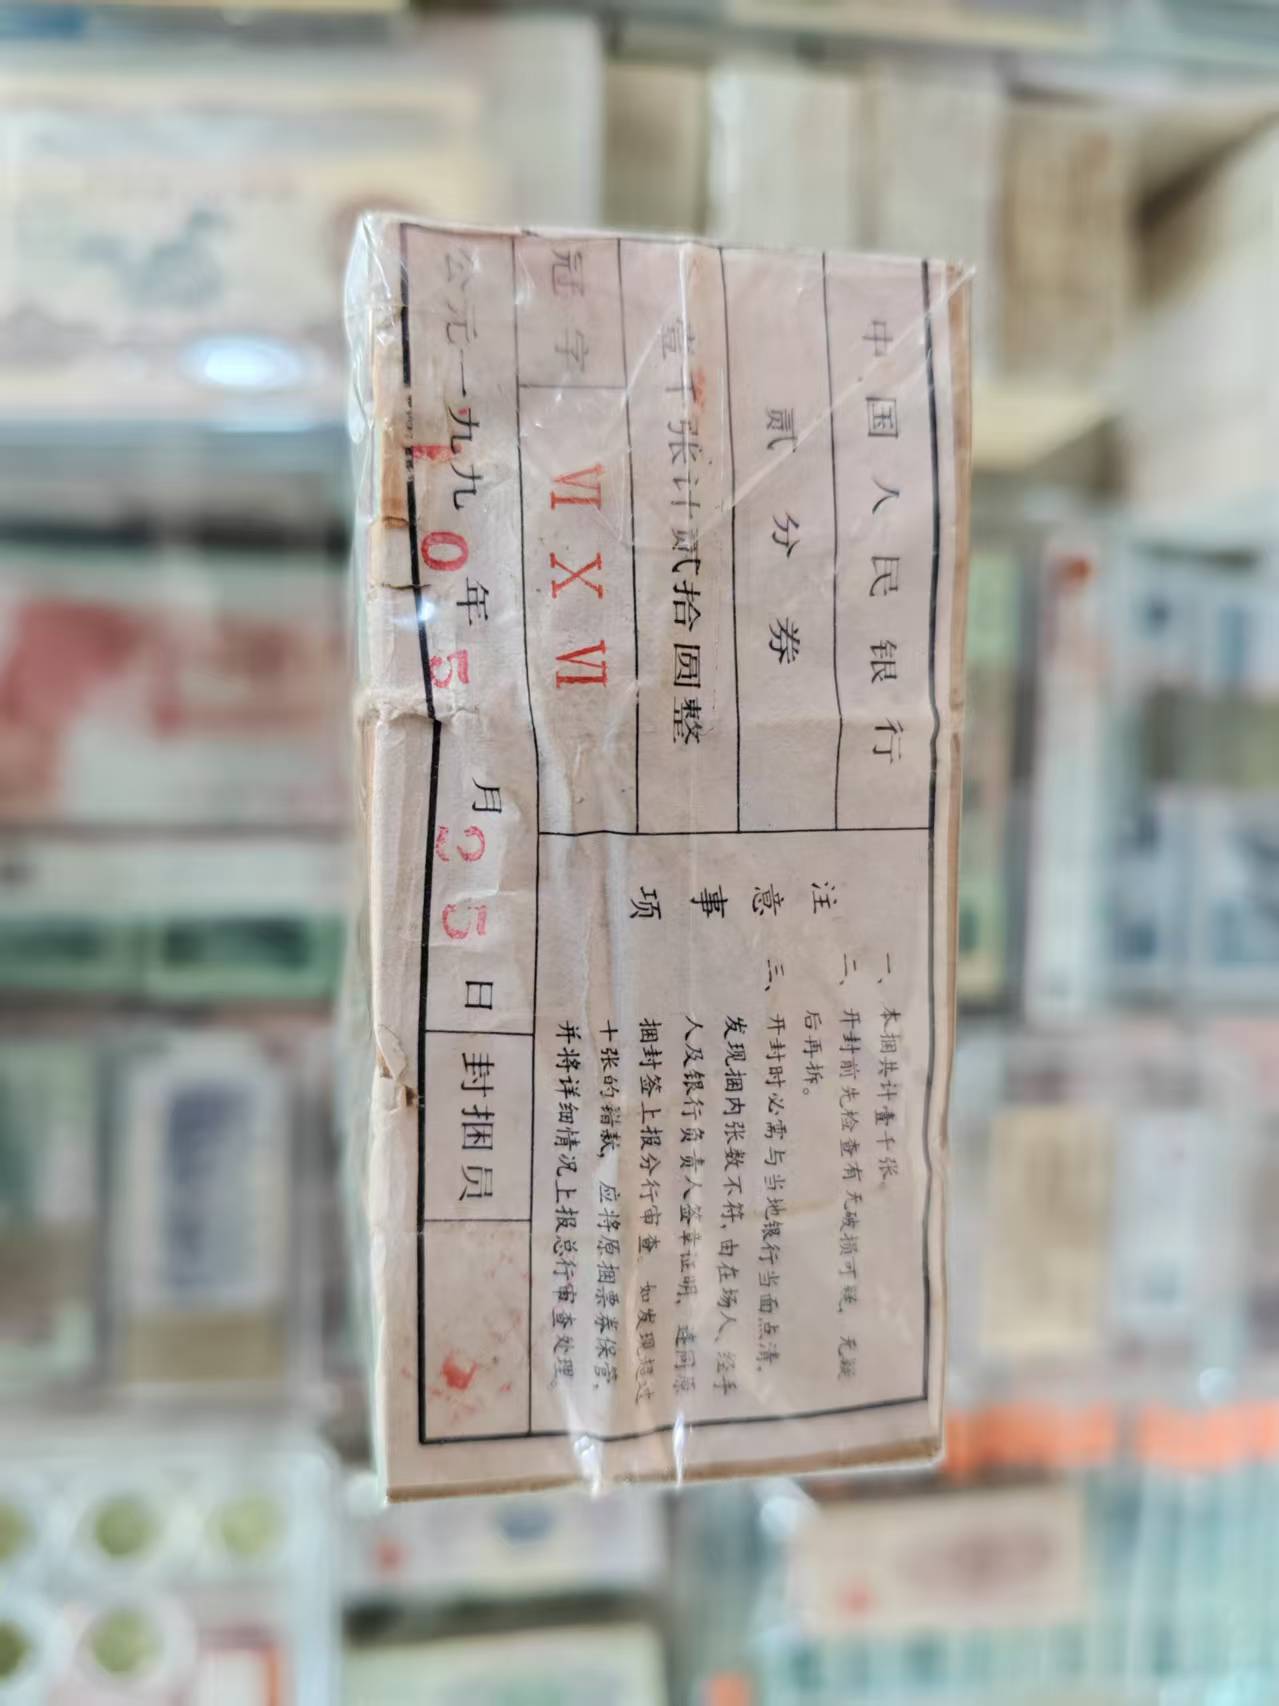 中国人民银行
贰分券
壹千张计贰拾圆整
冠字 VI X VI
公元一九九0年5月25日 封捆员
注意事项
一、本捆共计壹千张。
二、开封前先检查有无破损可疑，无疑
后再拆。
三、开封时必需与当地银行当面点清。
发现捆内张数不符，由在场人、经手
人及银行负责人签章证明，连同原
捆封签上报分行审查。如发现超过
十张的错款，应将原捆票券保管，
并将详细情况上报总行审查处理。